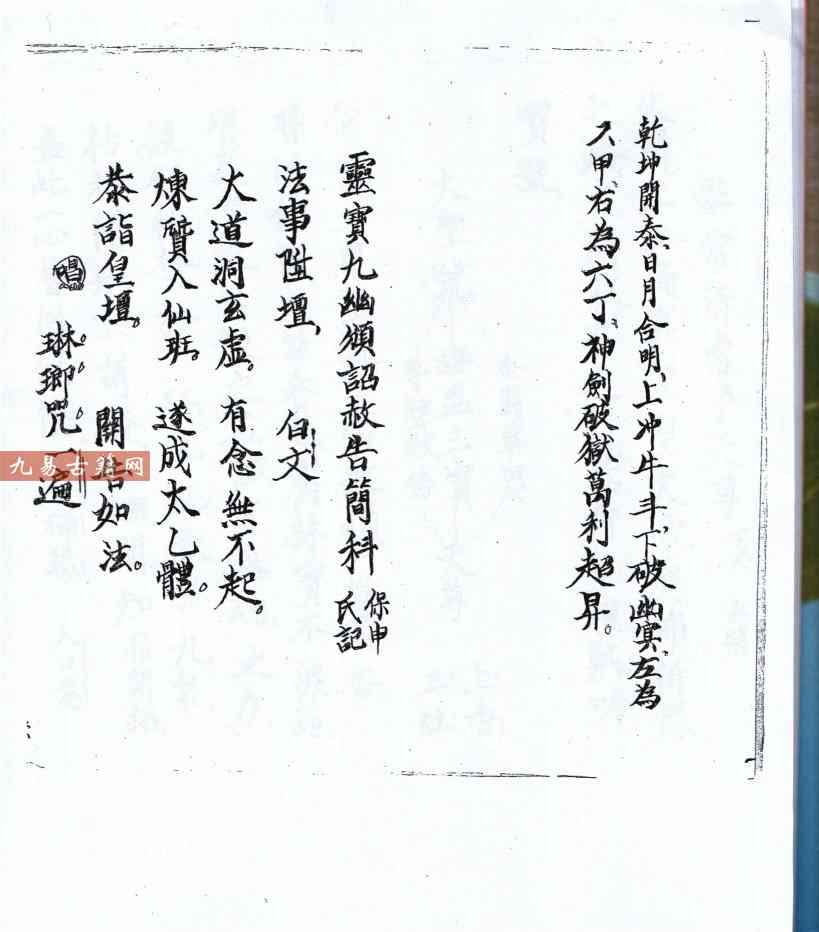 乾坤開泰、日月合明、上冲牛斗、下破幽冥、左為
六甲、右為六丁、神劍破獄萬利超昇。
靈寶九幽頒詔赦告簡科 保申氏記
法事陞壇、 白文
大道洞玄虛。有念無不起。
煉質入仙班。遂成太乙體。
恭詣皇壇。 開告如法。
唱 琳。瑯。咒。一遍
九易古籍网